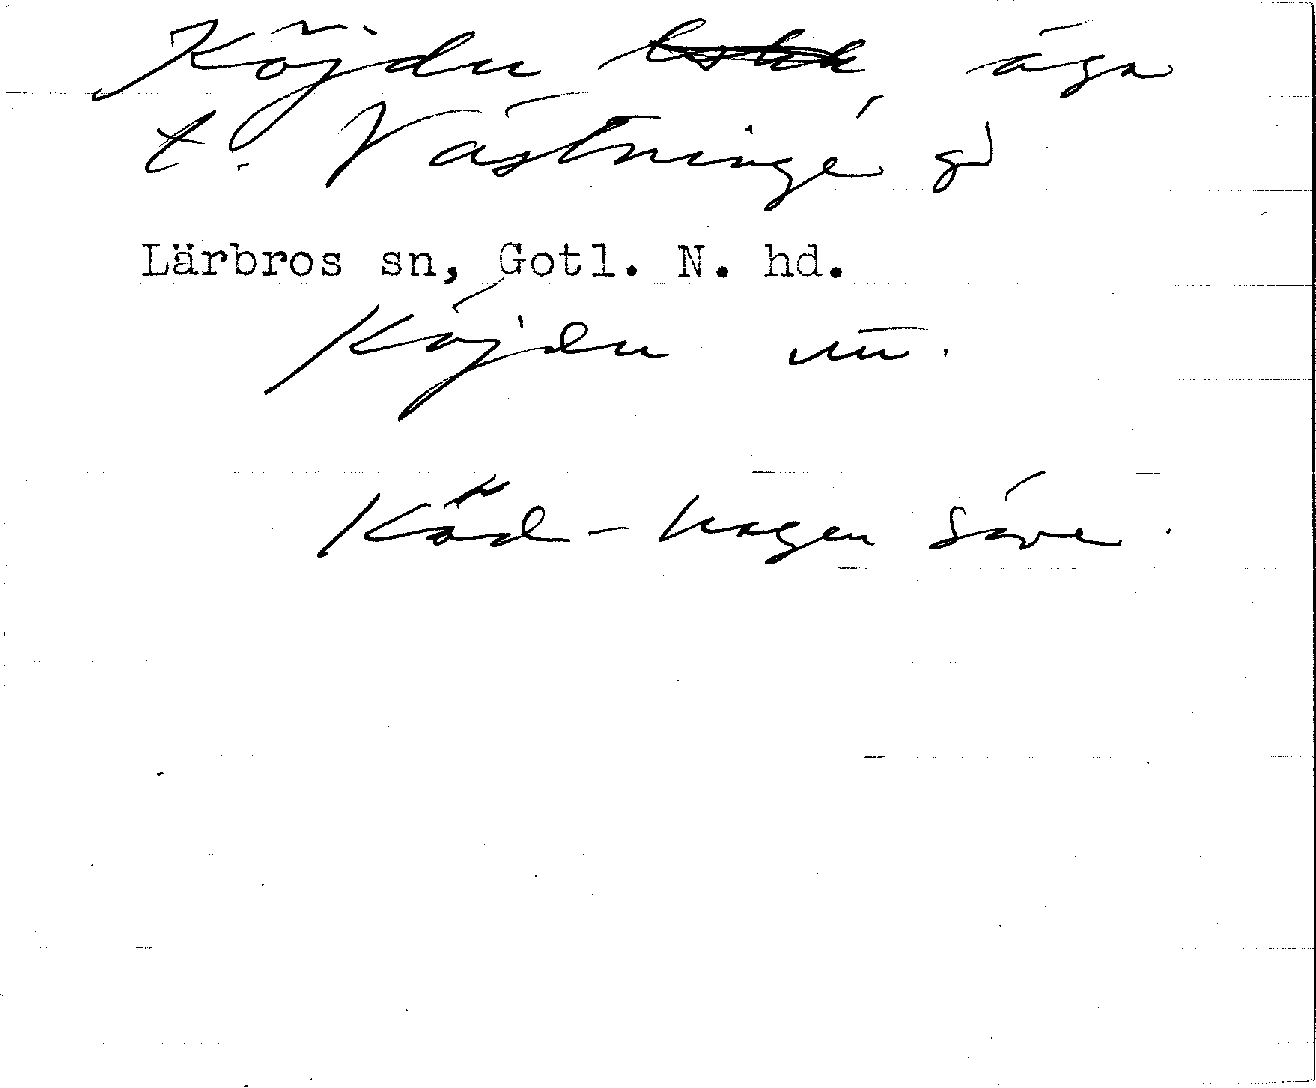 Köjdu äga
t. Västningé gd
Lärbros sn, Gotl. N. hd.
Köjdu un.
Köd-hagen Säve.